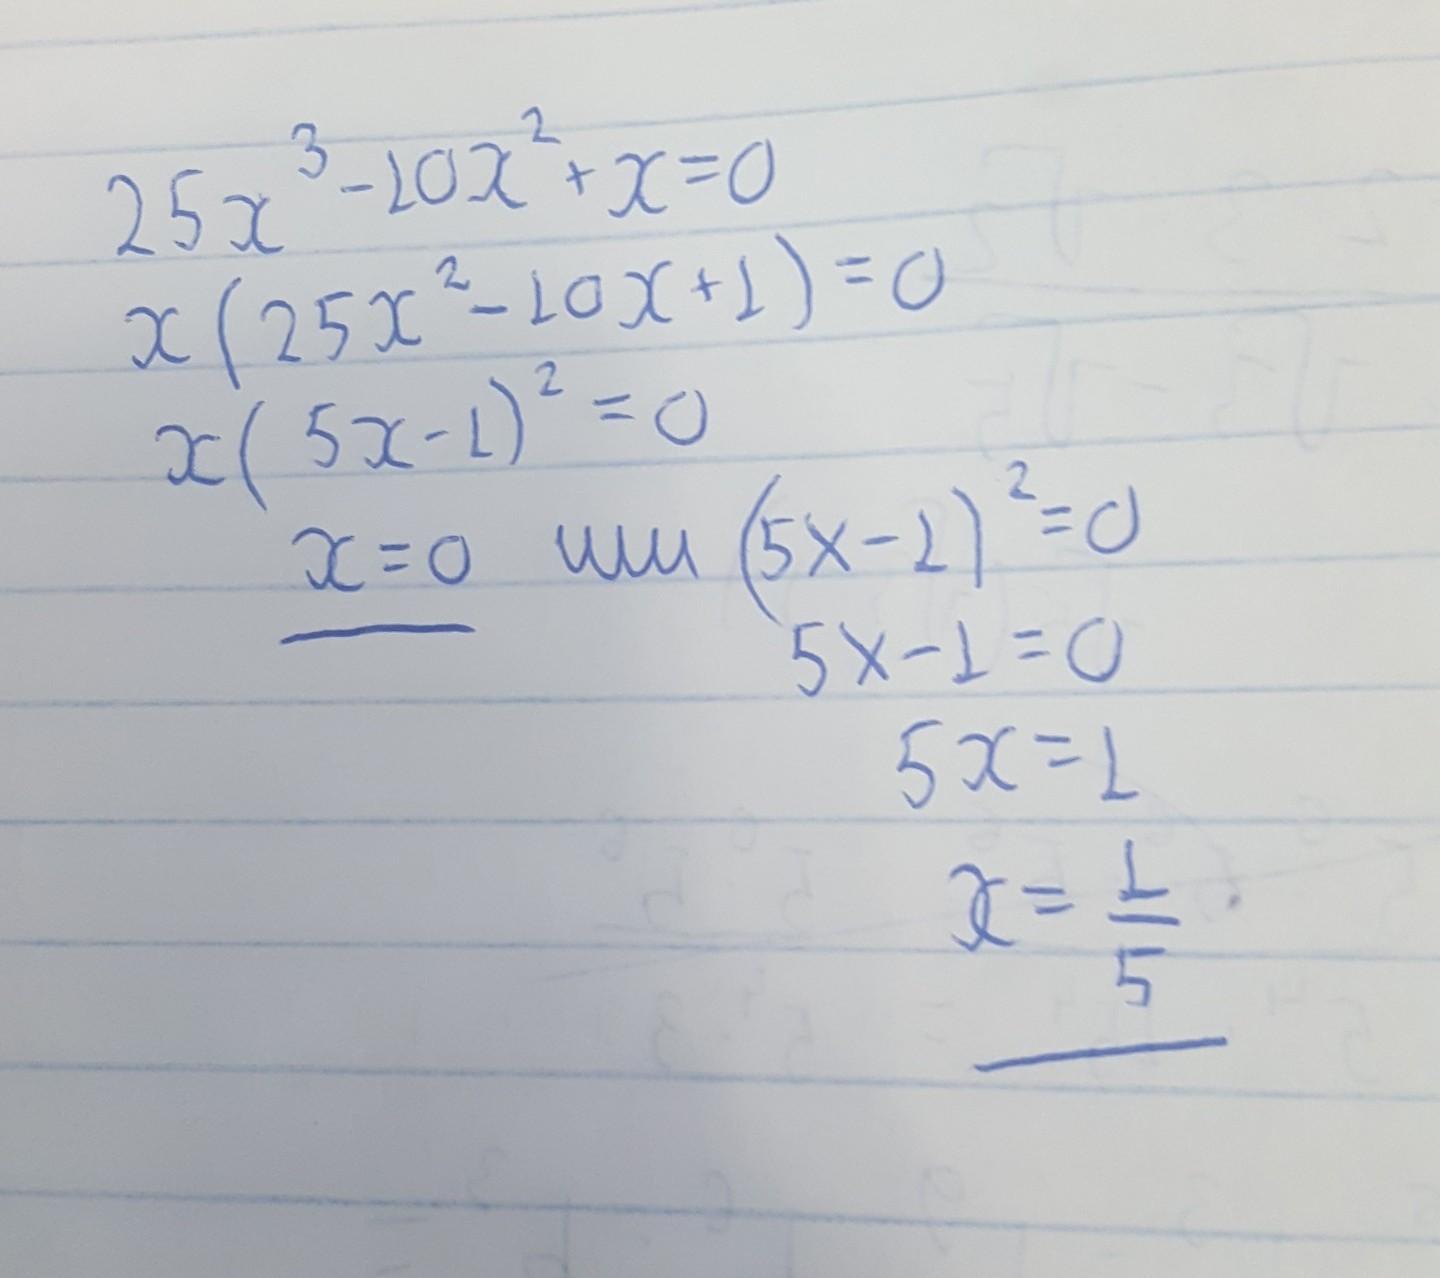 25x³-10x²+x=0
x(25x²-10x+1)=0
x(5x-1)²=0
x=0 или (5x-1)²=0
5x-1=0
5x=1
x=1/5